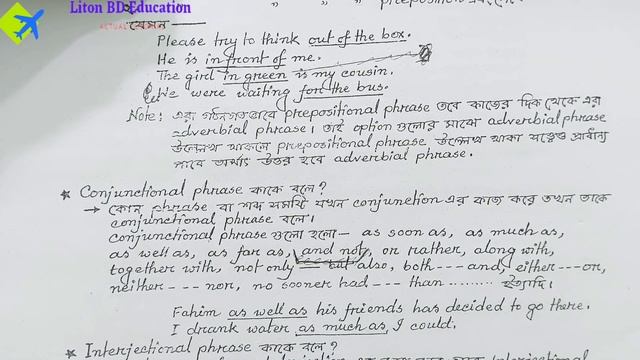 Liton BD Education
" " " preposition
যেমন
Please try to think out of the box.
He is in front of me.
The girl in green is my cousin.
We were waiting for the bus.
Note: এরা গঠনগতভাবে prepositional phrase তবে কাজের দিক থেকে এরা
adverbial phrase। তাই option গুলোর মাঝে adverbial phrase
উল্লেখ থাকলে prepositional phrase উল্লেখ থাকা সত্ত্বেও প্রাধান্য
পাবে অর্থাৎ উত্তর হবে adverbial phrase.
★ Conjunctional phrase কাকে বলে?
→ কোন phrase বা শব্দ সমষ্টি যখন conjunction এর কাজ করে তখন তাকে
conjunctional phrase বলে।
conjunctional phrase গুলো হলো— as soon as, as much as,
as well as, as far as, and not, or rather, along with,
together with, not only — but also, both --- and, either --- or,
neither --- nor, no sooner had --- than ......... ইত্যাদি।
Fahim as well as his friends has decided to go there.
I drank water as much as I could.
★ Interjectional phrase কাকে বলে?